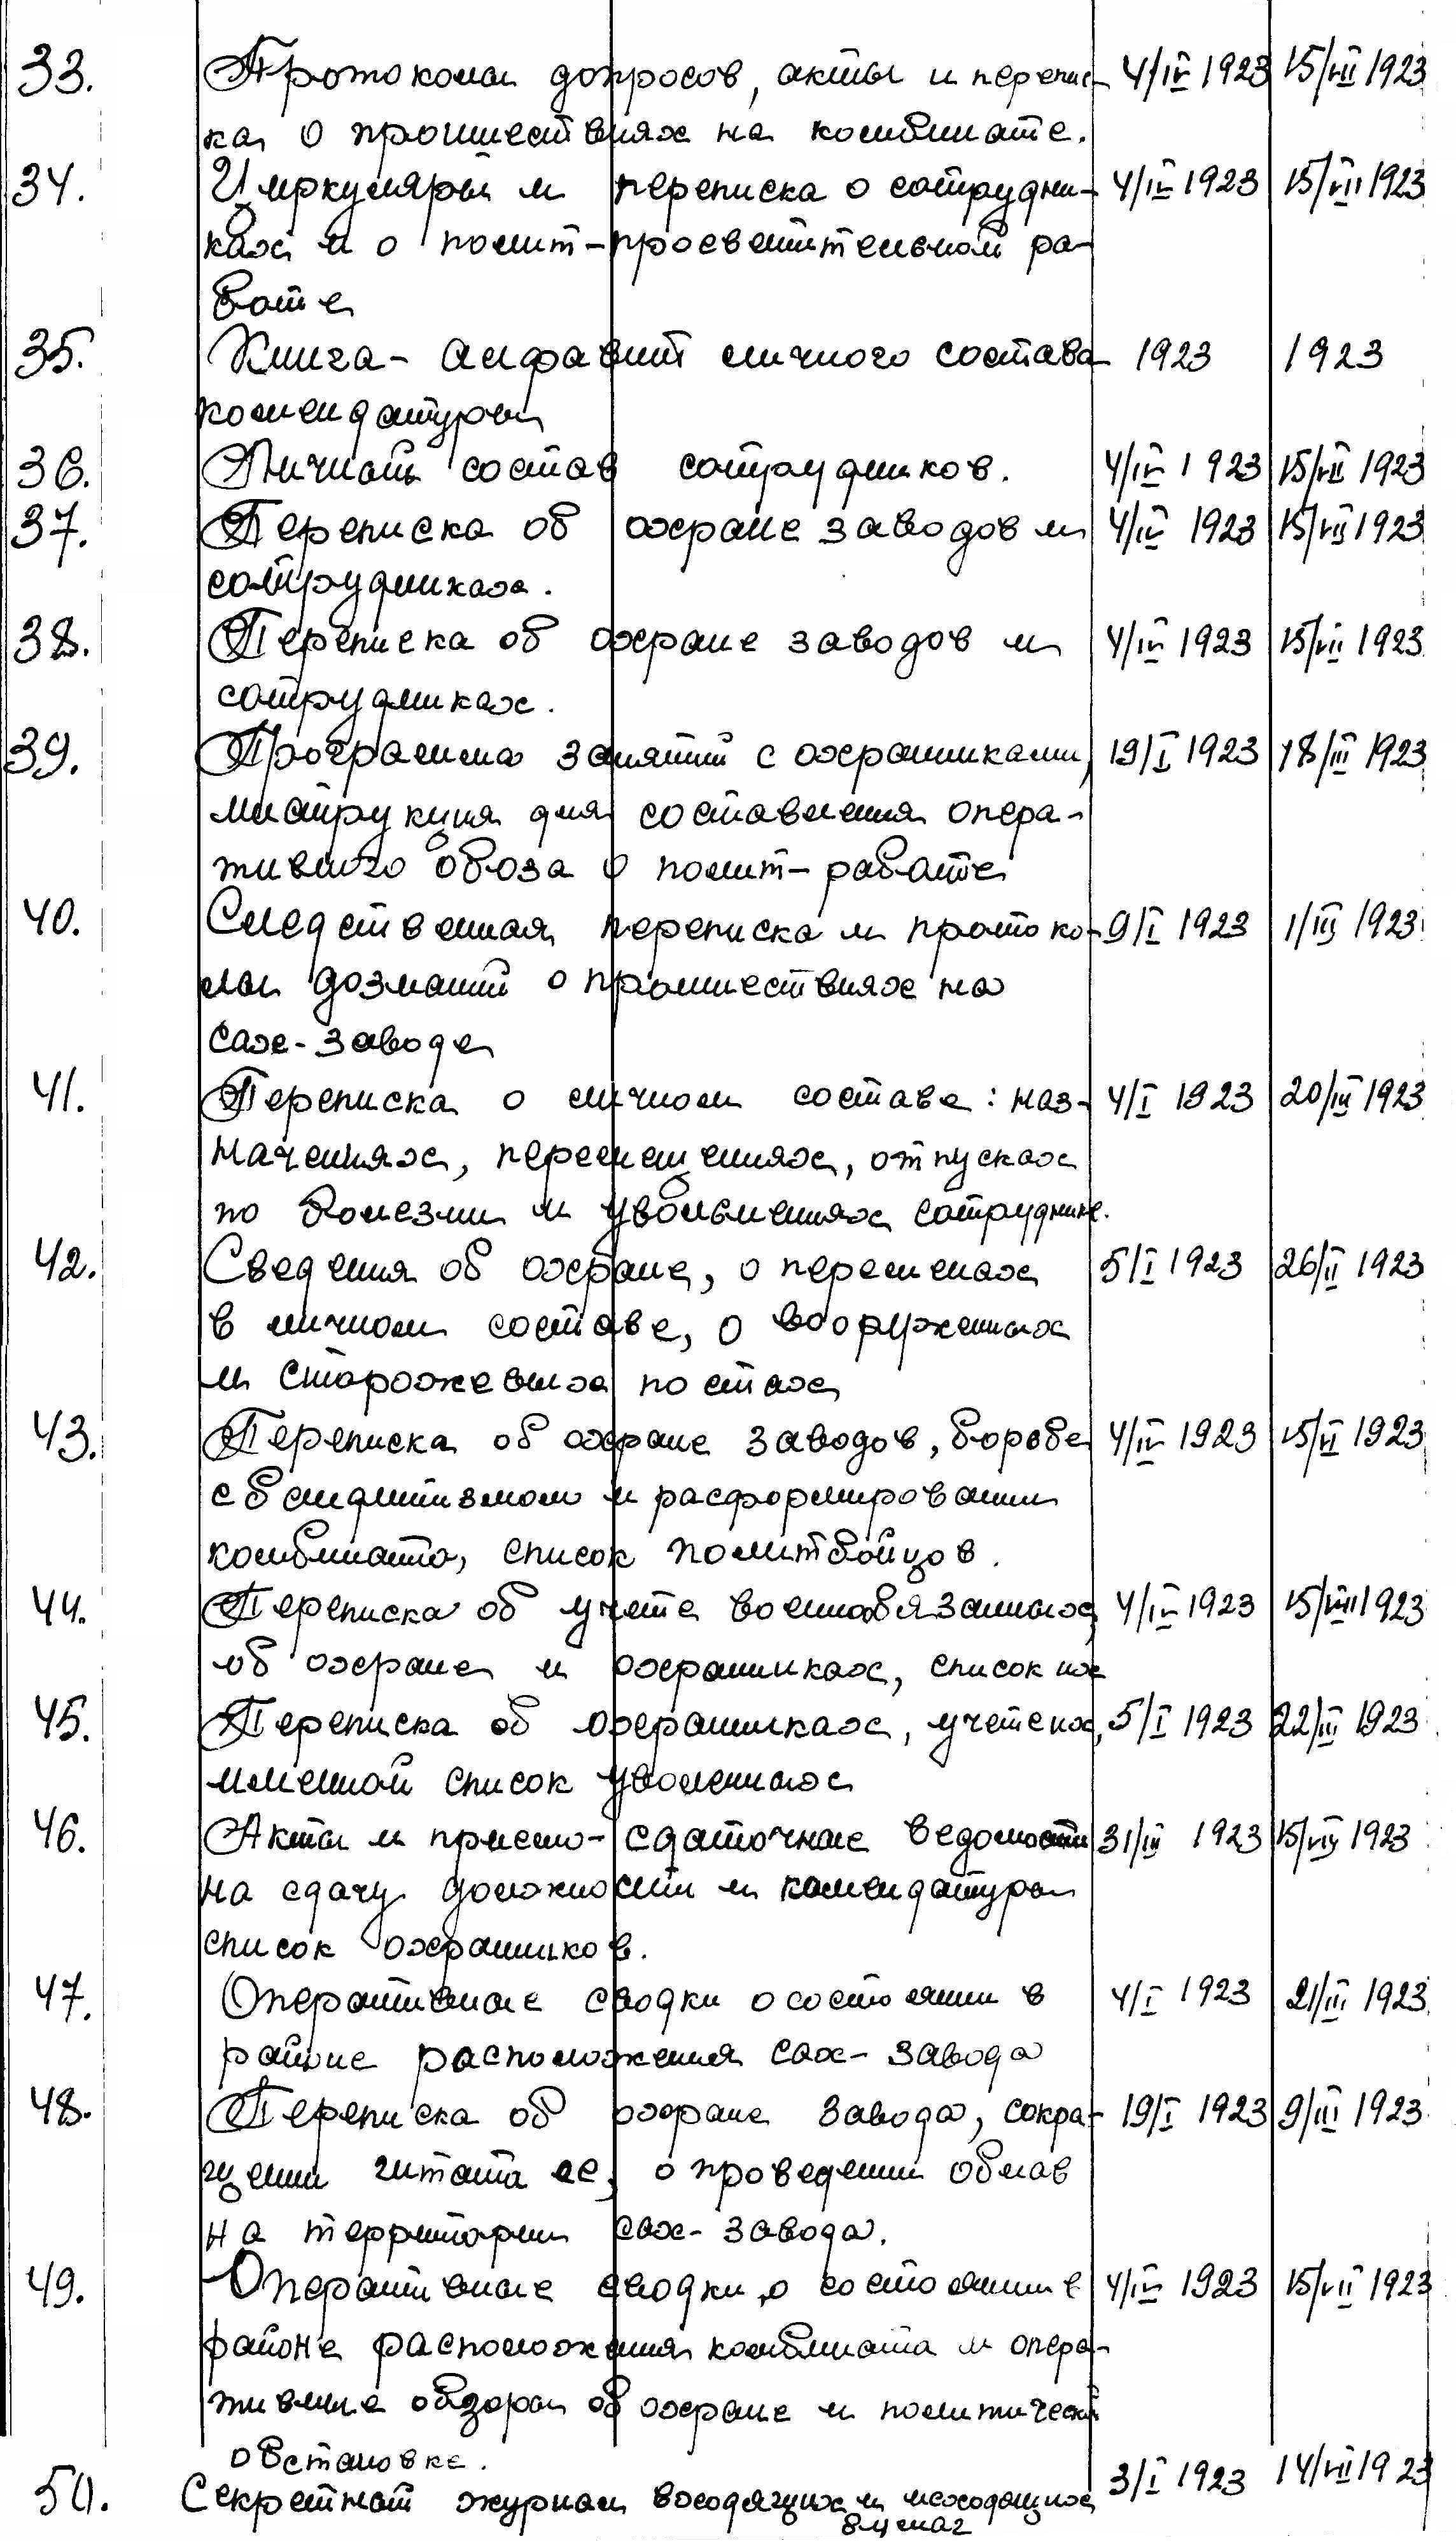 33. Протоколы допросов, акты и перепис- 4/IV 1923 15/VII 1923
ка о происшествиях на комбинате.
34. Циркуляры и переписка о сотрудни- 4/IV 1923 15/VII 1923
ках и о полит-просветительной ра-
боте
35. Книга-алфавит личного состава 1923 1923
комендатуры
36. Личный состав сотрудников. 4/IV 1923 15/VII 1923
37. Переписка об охране заводов и 4/IV 1923 15/VII 1923
сотрудниках.
38. Переписка об охране заводов и 4/IV 1923 15/VII 1923
сотрудниках.
39. Программа занятий с охранниками, 19/I 1923 18/III 1923
инструкция для составления опера-
тивного обоза о полит-работе
40. Следственная переписка и протоко- 9/I 1923 1/III 1923
лы дознаний о происшествиях на
сах-заводе
41. Переписка о личном составе: наз- 4/I 1923 20/III 1923
начениях, перемещениях, отпусках
по болезни и увольнениях сотрудник.
42. Сведения об охране, о переменах 5/I 1923 26/II 1923
в личном составе, о вооруженных
и сторожевых постах
43. Переписка об охране заводов, борьбе 4/IV 1923 15/VI 1923
с бандитизмом и расформировании
комбината, список политбойцов.
44. Переписка об учете военнообязанных, 4/IV 1923 15/VIII 1923
об охране и охранниках, список их
45. Переписка об охранниках, учет их, 5/I 1923 22/III 1923
именной список уволенных
46. Акты и приемо-сдаточные ведомости 31/III 1923 15/VII 1923
на сдачу должности и комендатуры
список охранников.
47. Оперативные сводки о состоянии в 4/I 1923 21/III 1923
районе расположения сах-завода
48. Переписка об охране завода, сокра- 19/I 1923 9/III 1923
щении штата ее, о проведении облав
на территории сах-завода.
49. Оперативные сводки о состоянии в 4/IV 1923 15/VII 1923
районе расположения комбината и опера-
тивные обзоры об охране и политической
обстановке.
50. Секретный журнал входящих и исходящих 3/I 1923 14/VII 1923
бумаг